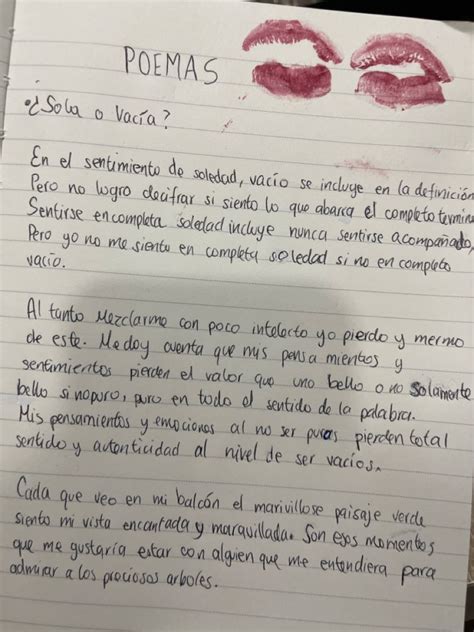 POEMAS
• ¿Sola o Vacía?
En el sentimiento de soledad, vacío se incluye en la definición
Pero no logro decifrar si siento lo que abarca el completo termino
Sentirse en completa soledad incluye nunca sentirse acompañado,
Pero yo no me siento en completa soledad si no en completo
vacío.
Al tanto Mezclarme con poco intelecto yo pierdo y mermo
de este. Me doy cuenta que mis pensamientos y
sentimientos pierden el valor que uno bello o no solamente
bello sino puro, puro en todo el sentido de la palabra.
Mis pensamientos y emociones al no ser puras pierden total
sentido y autonticidad al nivel de ser vacíos.
Cada que veo en mi balcón el marivillose paisaje verde
siento mi vista encantada y maravillada. Son esos momentos
que me gustaría estar con alguien que me entendiera para
admirar a los prociosos arboles.